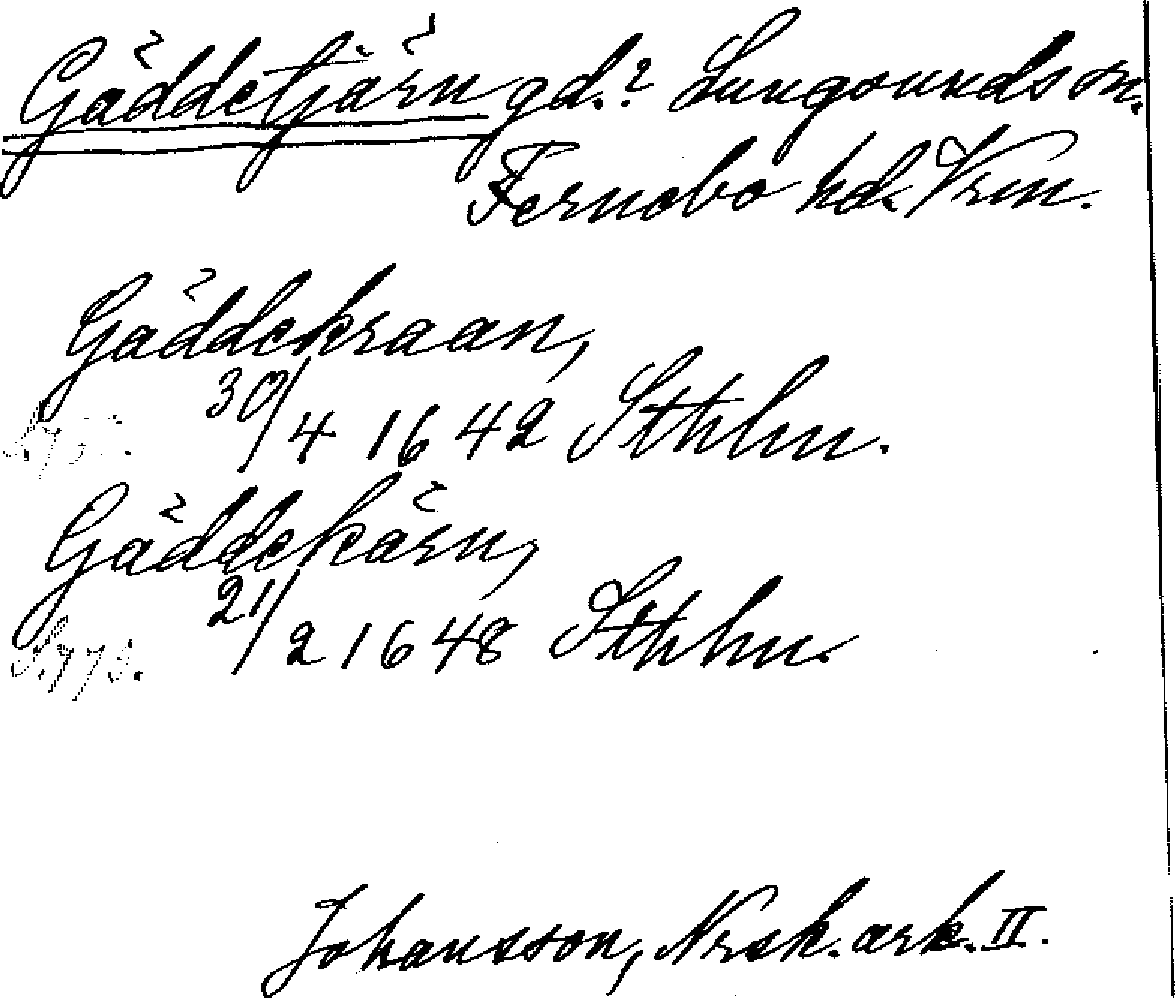 Gäddetjärn gd.? Lungsunds sn.
Fernebo hd. Vrm.
Gäddekraan,
30/4 1642 Sthlm.
Gäddekärn,
21/2 1648 Sthlm.
S. 773.
Johansson, Nrsk. ark. II.